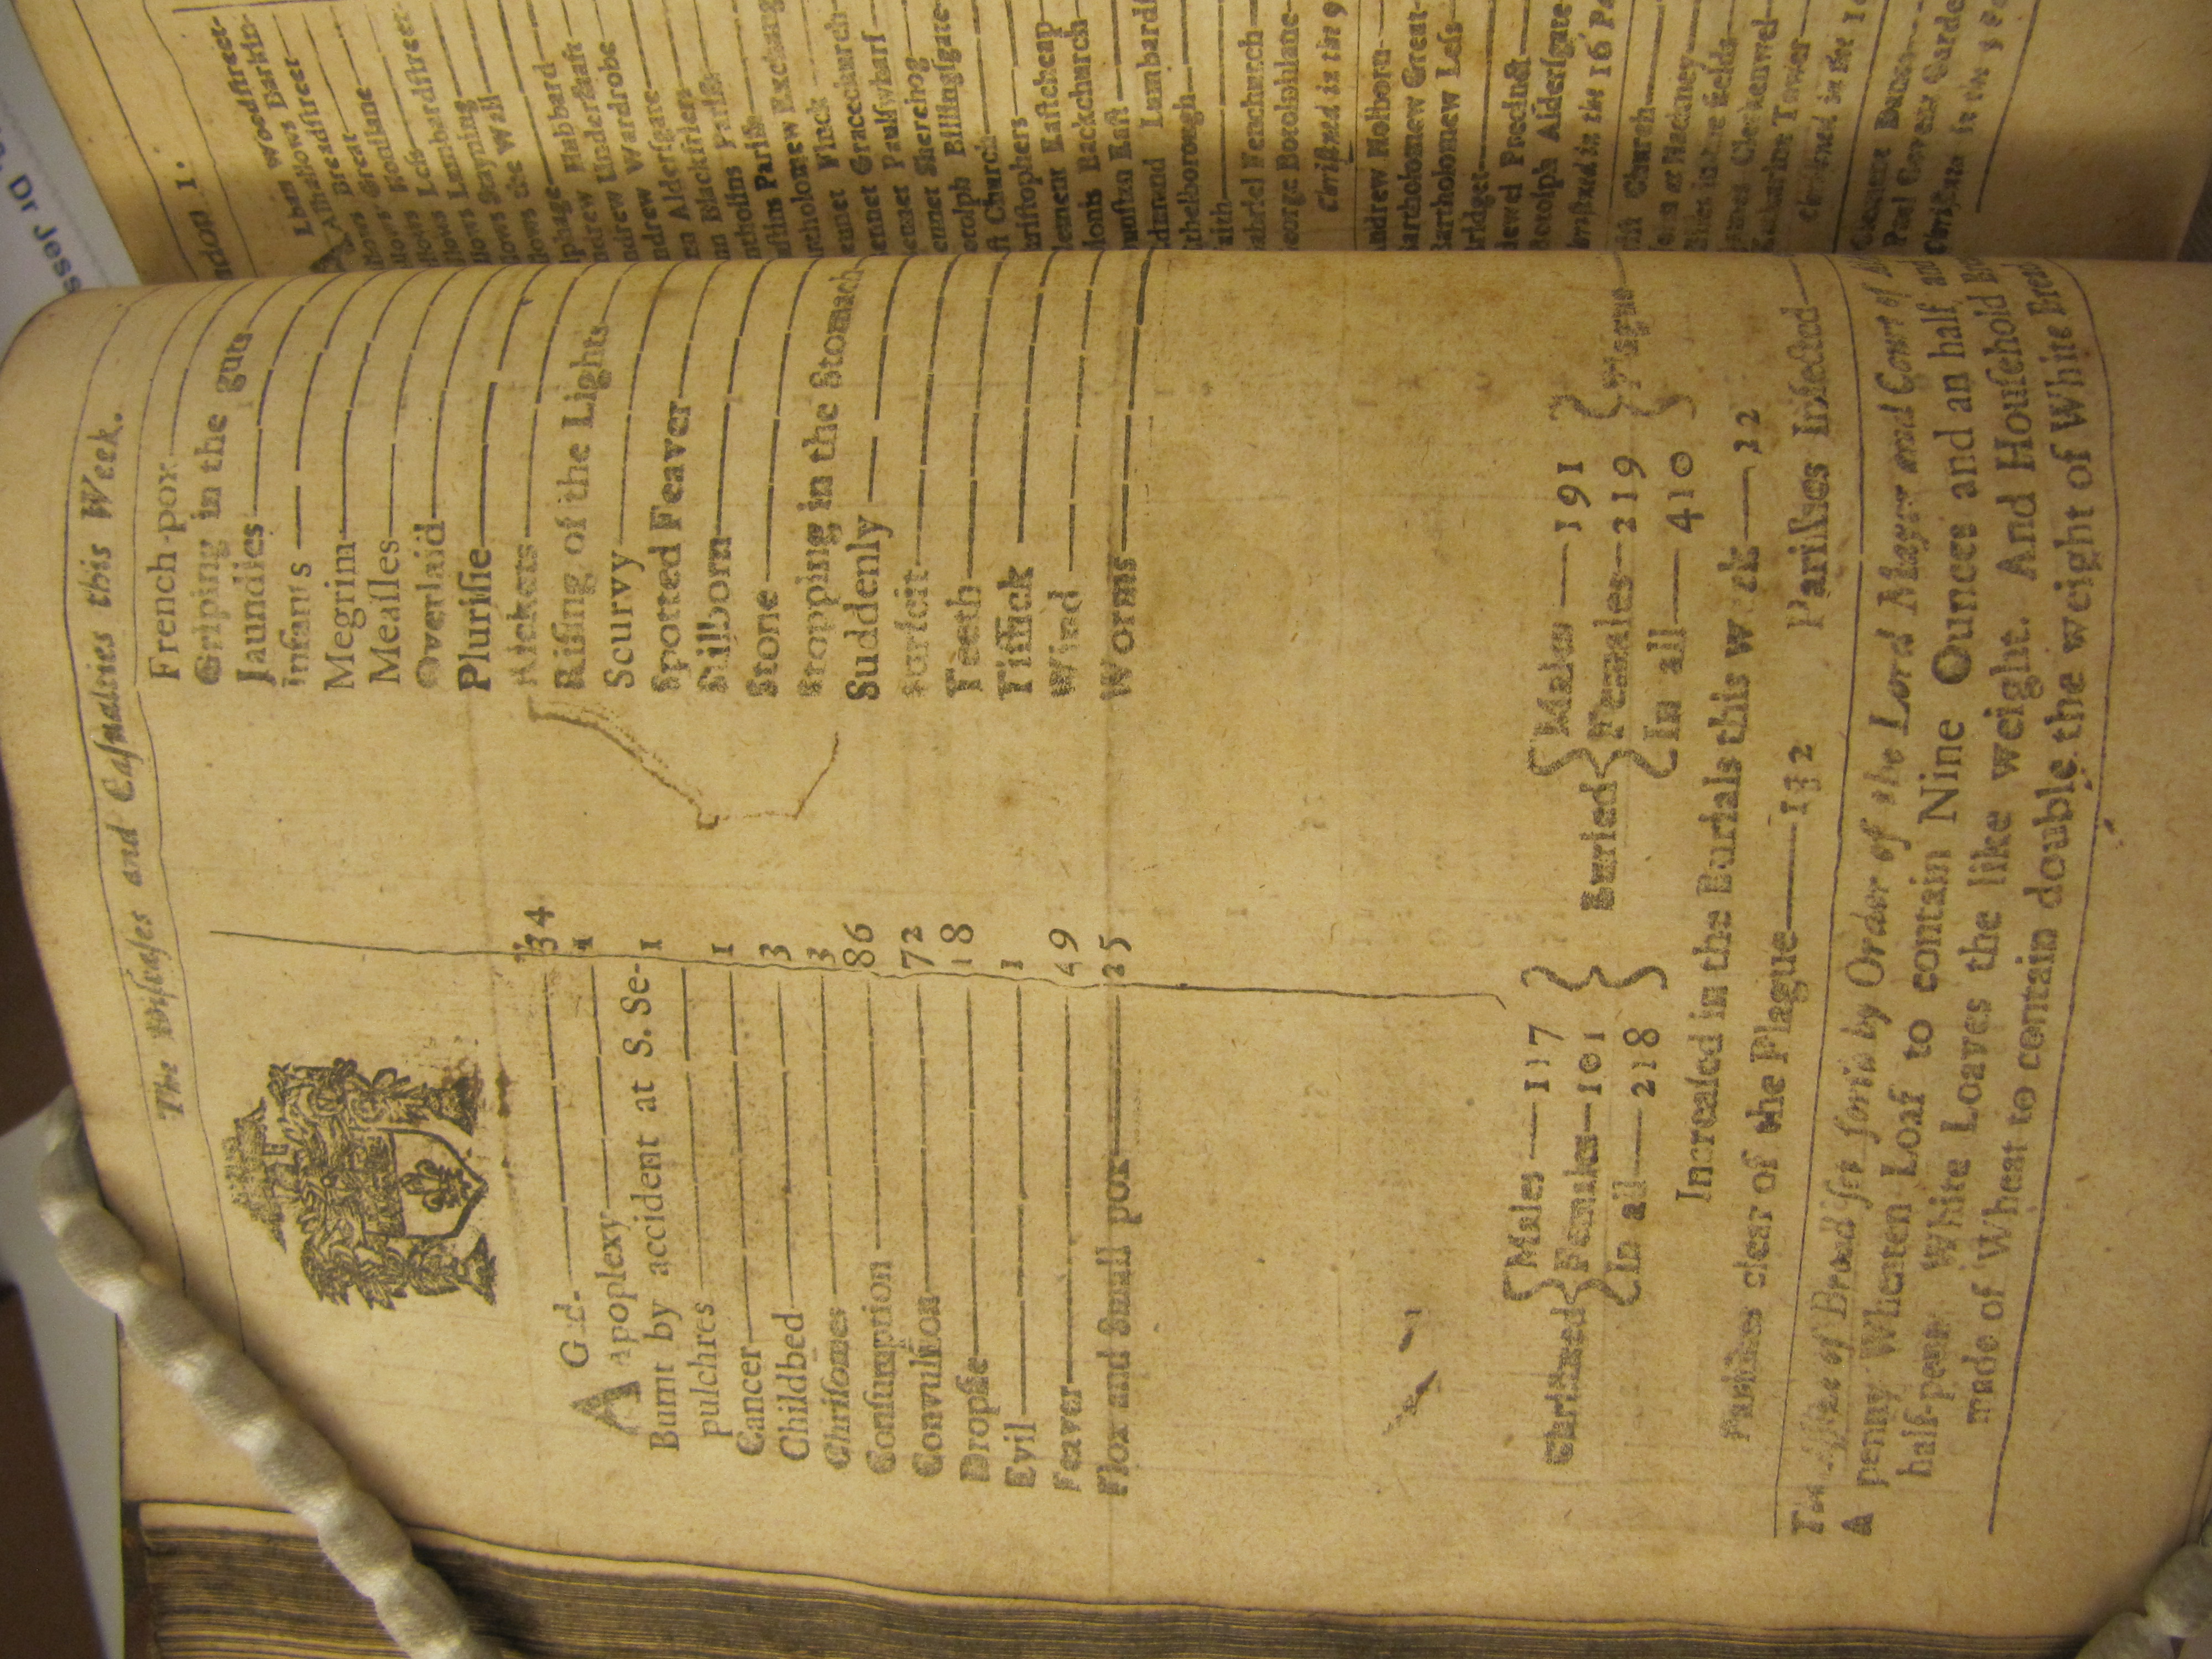 The Diseases and Casualties this Week.
AGed 34
Apoplexy 1
Burnt by accident at S. Se-
pulchres 1
Cancer 1
Childbed 3
Chrisomes 3
Consumption 86
Convulsion 72
Dropsie 18
Evil 1
Feaver 49
Flox and Small pox 25
French-pox
Griping in the guts
Jaundies
Infants
Megrim
Measles
Overlaid
Plurisie
Rickets
Rising of the Lights
Scurvy
Spotted Feaver
Stilborn
Stone
Stopping in the Stomach
Suddenly
Surfeit
Teeth
Tissick
Wind
Worms
Christned
Males 117
Females 101
In all 218
Buried
Males 191
Females 219
In all 410
Plague
Increased in the Burials this week 22
Parishes clear of the Plague 132 Parishes Infected
The Assize of Bread set forth by Order of the Lord Mayor and Court of
A penny Wheaten Loaf to contain Nine Ounces and an half and
half-penny White Loaves the like weight. And Houſehold
made of Wheat to contain double the weight of White Bread
ndon 1.
Lban Woodſtreet
Alhallows Barkin
Breadſtreet
Great
Honilane
Leſs
Lumbardſtreet
Stayning
the Wall
Hubbard
Underſhaft
Wardrobe
Alderſgate
Blackfriers
Pariſh
ſtins Pariſh
Exchang
Finck
Gracechurch
Paulſwharf
Sherehog
Billingſgate
Church
riſtophers
Eaſtcheap
Backchurch
Eaſt
Lumbard
thelborough
aith
abriel Fenchurch
eorge Botolphlane
Chriſtned in the 9
ndrew Holborn
artholomew Great
artholomew Leſs
ridget
idewel Precinct
Botolph Alderſgate
in the 16 Pa
Church
at Hackney
Giles in the Fields
Clerkenwel
Katharine Tower
in the
Clement Danes
Paul Covent Garde
in the 5 Pa
Dr Jess